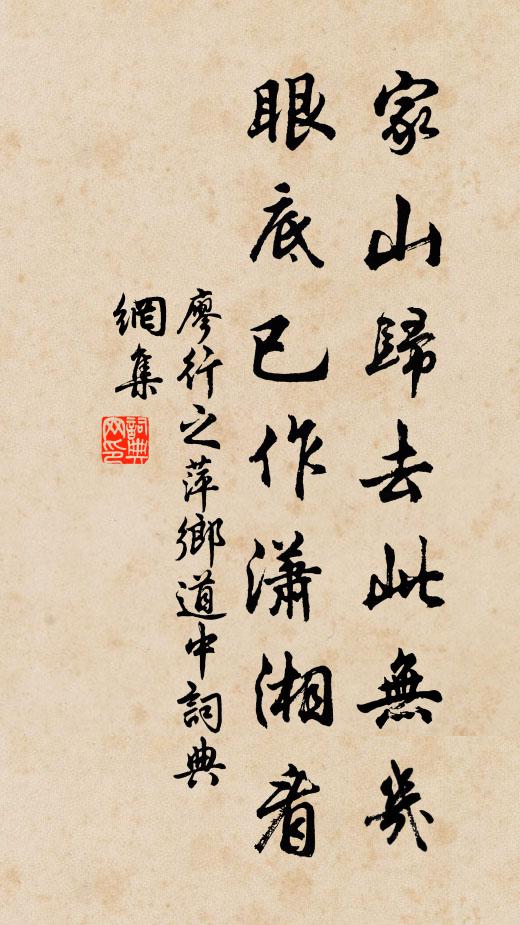 家山歸去此無幾
眼底已作瀟湘看
廖行之萍鄉道中詞典
網集
詞典网印